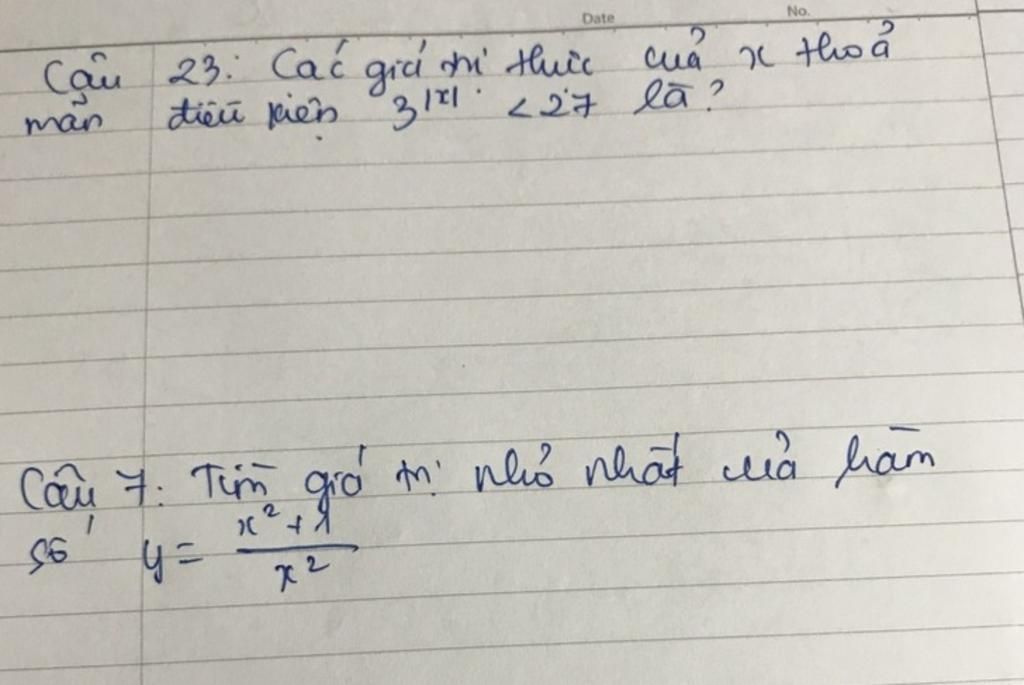 Date No.
Câu 23: Các giá trị thực của x thoả
mãn điều kiện 3^|x| < 27 là?
Câu 7: Tìm giá trị nhỏ nhất của hàm
số y = (x² + 1)/x²